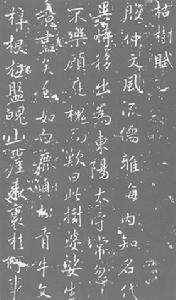 枯樹賦
殷仲文風流儒雅海內知名代
異時移出為東陽太守常忽忽
不樂顧庭槐而歎曰此樹婆娑生
意盡矣至如白鹿貞松青牛文
梓根柢盤魄山崖表裏桂何事